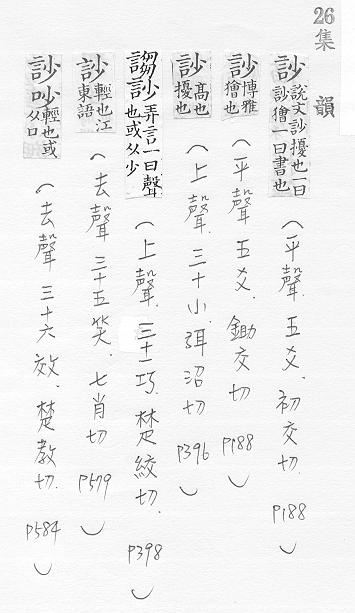 26集韻
訬 說文訬擾也一曰訬獪一曰書也(平聲 五爻.初交切.P188)
訬 博雅獪也(平聲 五爻.鋤交切 P188)
訬 高也擾也(上聲.三十小.弭沼切 P396)
謅訬 弄言一曰聲也或从少(上聲.三十一巧.楚絞切.P398)
訬 輕也江東語(去聲 三十五笑.七肖切 P579)
訬吵 輕也或从口(去聲 三十六效.楚教切.P584)